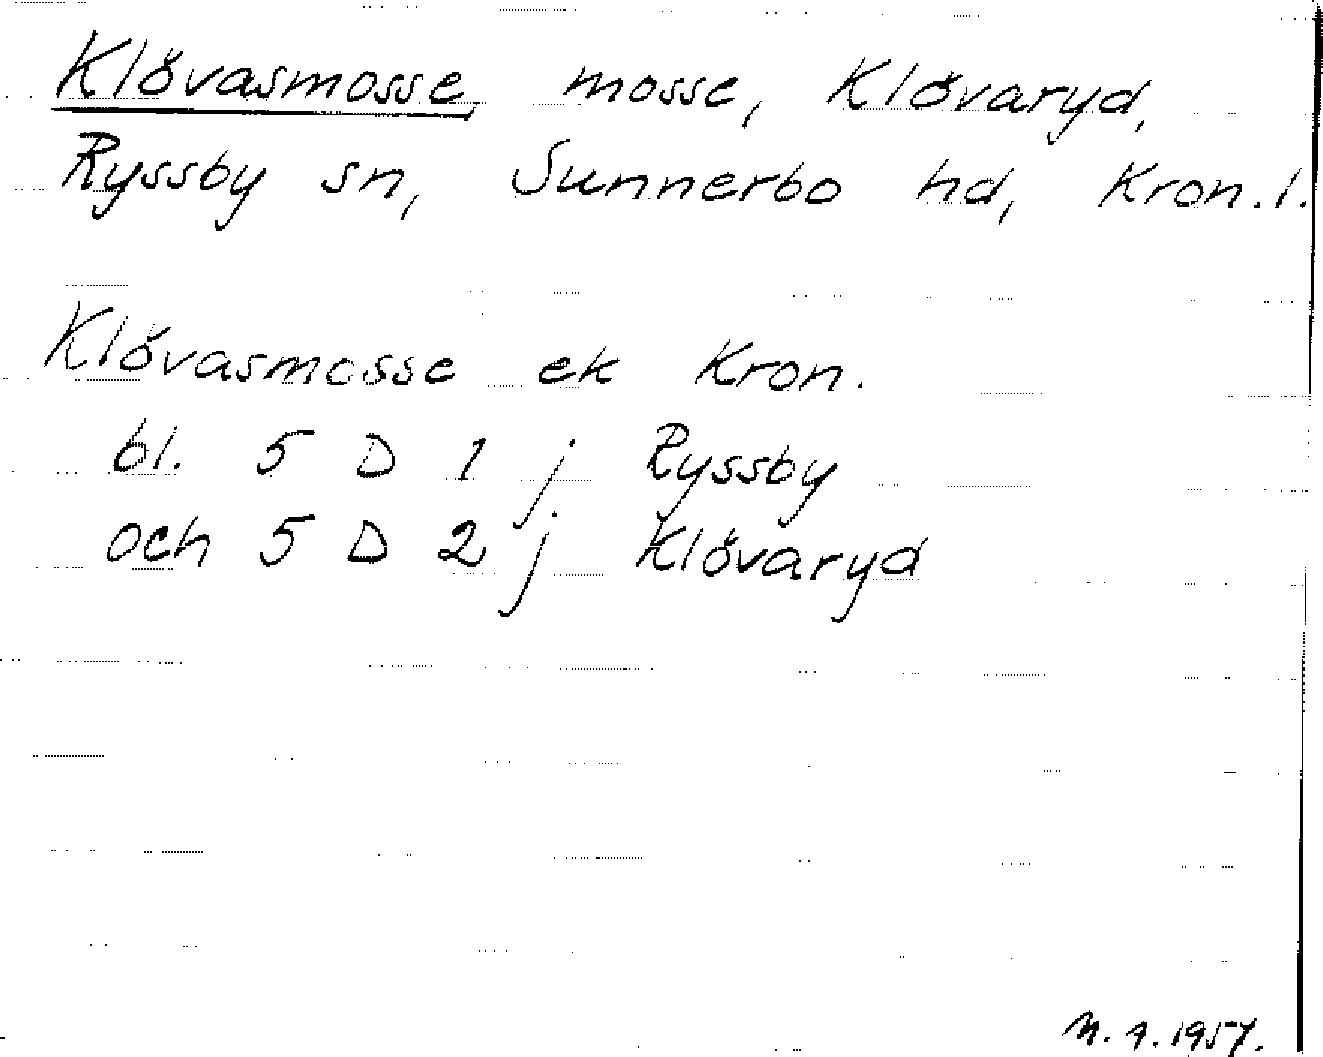 Klövasmosse mosse, Klövaryd,
Ryssby sn, Sunnerbo hd, Kron.l.
Klövasmosse ek Kron.
bl. 5 D 1 j Ryssby
och 5 D 2 j Klövaryd
1957.